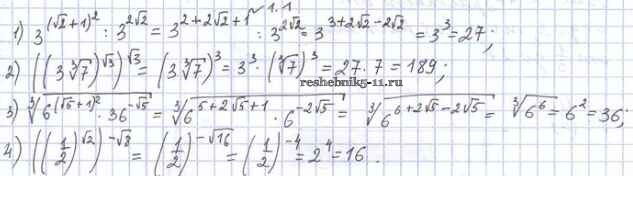 √ 1.1
1) 3^(√2+1)² : 3^2√2 = 3^2+2√2+1 : 3^2√2 = 3^3+2√2-2√2 = 3³ = 27;
2) ((3∛7)^√3)^√3 = (3∛7)³ = 3³ · (∛7)³ = 27 · 7 = 189;
reshebnik5-11.ru
3) ∛(6^(√5+1)² · 36^-√5) = ∛(6^5+2√5+1 · 6^-2√5) = ∛(6^6+2√5-2√5) = ∛(6⁶) = 6² = 36;
4) ((1/2)^√2)^-√8 = (1/2)^-√16 = (1/2)^-4 = 2⁴ = 16.